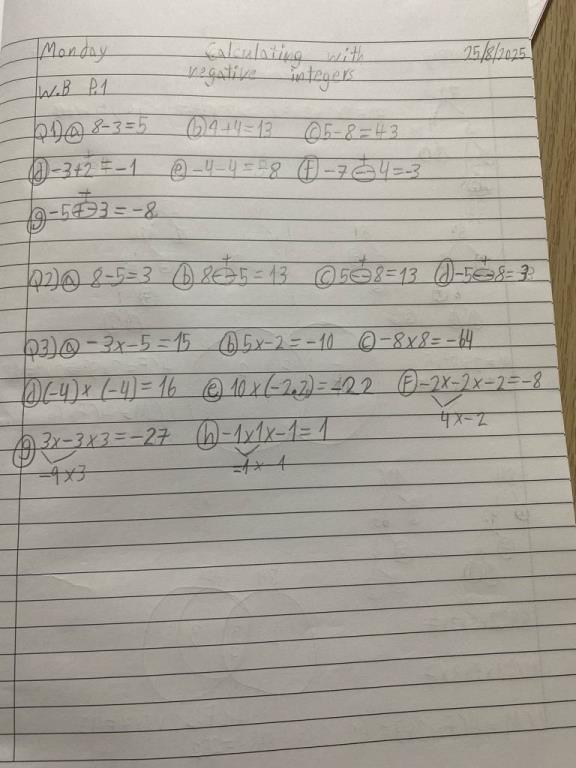 Monday Calculating with 25/8/2025
negative integers
W.B P.1
Q1) a 8-3=5 b 9+4=13 c 5-8=
d -3+2=-1 e -4-4=-8 f -7 + 4=-3
g -5 + 3=-8
Q2) a 8-5=3 b 8 + 5=13 c 5 + 8=13 d -5 + 8=3
Q3) a -3x-5=15 b 5x-2=-10 c -8x8=-64
d (-4)x(-4)=16 e 10x(-2.2)=-22 f -2x-2x-2=-8
4x-2
g 3x-3x3=-27 h -1x1x-1=1
-9x3 -1x-1